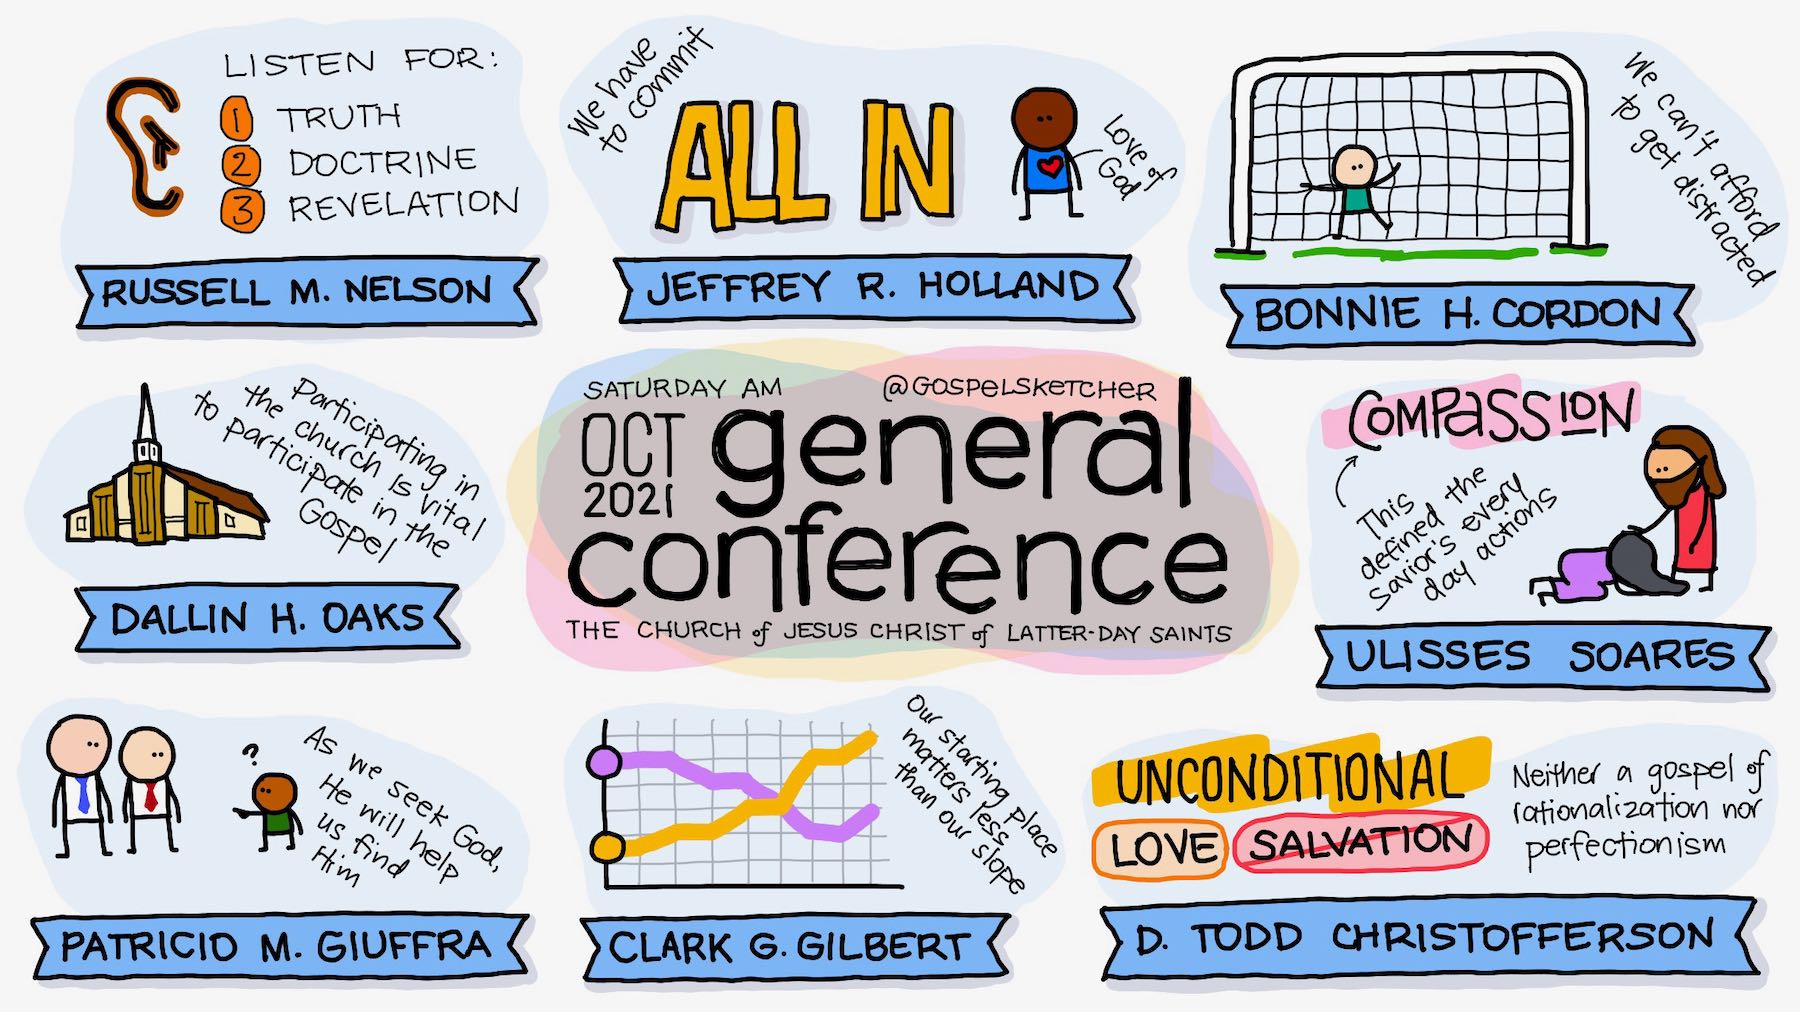 LISTEN FOR:
1 TRUTH
2 DOCTRINE
3 REVELATION
RUSSELL M. NELSON
We have
to commit
ALL IN
Love of
God
JEFFREY R. HOLLAND
We can't afford
to get distracted
BONNIE H. CORDON
Participating in
the church is vital
to participate in the
Gospel
DALLIN H. OAKS
SATURDAY AM
@GOSPELSKETCHER
OCT
2021
general
conference
THE CHURCH of JESUS CHRIST of LATTER-DAY SAINTS
COMPASSION
This
defined the
savior's every
day actions
ULISSES SOARES
?
As we seek God,
He will help
us find
Him
PATRICIO M. GIUFFRA
Our starting place
matters less
than our slope
CLARK G. GILBERT
UNCONDITIONAL
LOVE SALVATION
Neither a gospel of
rationalization nor
perfectionism
D. TODD CHRISTOFFERSON